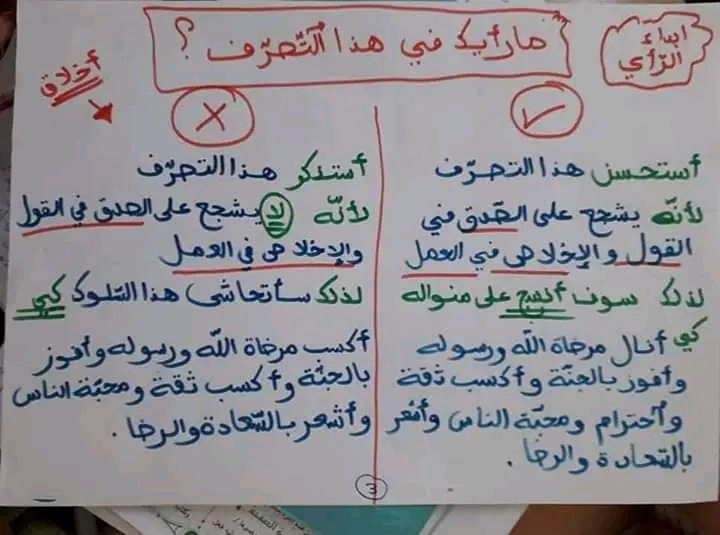 إبداء
الرّأي
ما رأيك في هذا التّصرّف ؟
أخلاق
أستحسن هذا التصرّف
لأنّه يشجع على الصّدق في
القول والإخلاص في العمل
لذلك سوف أنسج على منواله
كي أنال مرضاة اللّه ورسوله
وأفوز بالجنّة وأكسب ثقة
وٱحترام ومحبّة الناس وأشعر
بالسّعادة والرضا .
أستنكر هذا التصرّف
لأنّه لا يشجع على الصدق في القول
والإخلاص في العمل
لذلك سأتحاشى هذا السّلوك كي
أكسب مرضاة اللّه ورسوله وأفوز
بالجنّة وأكسب ثقة ومحبّة الناس
وأشعر بالسّعادة والرضا .
3